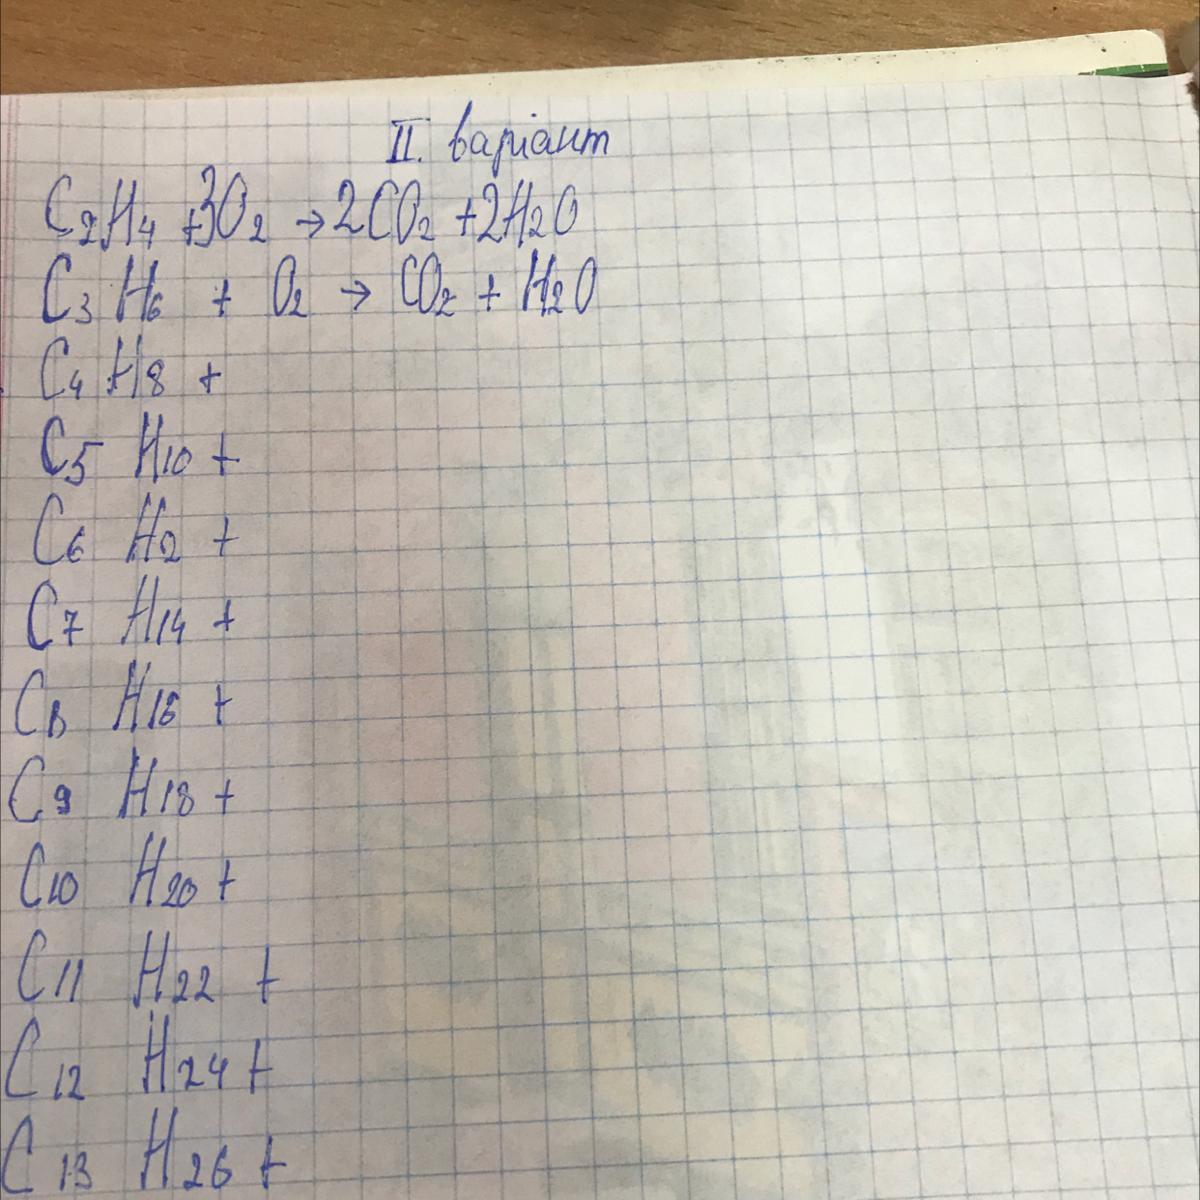 II. варіант
C2H4 + 3O2 → 2CO2 + 2H2O
C3 H6 + O2 → CO2 + H2O
C4 H8 +
C5 H10 +
C6 H2 +
C7 H14 +
C8 H16 +
C9 H18 +
C10 H20 +
C11 H22 +
C12 H24 +
C13 H26 +